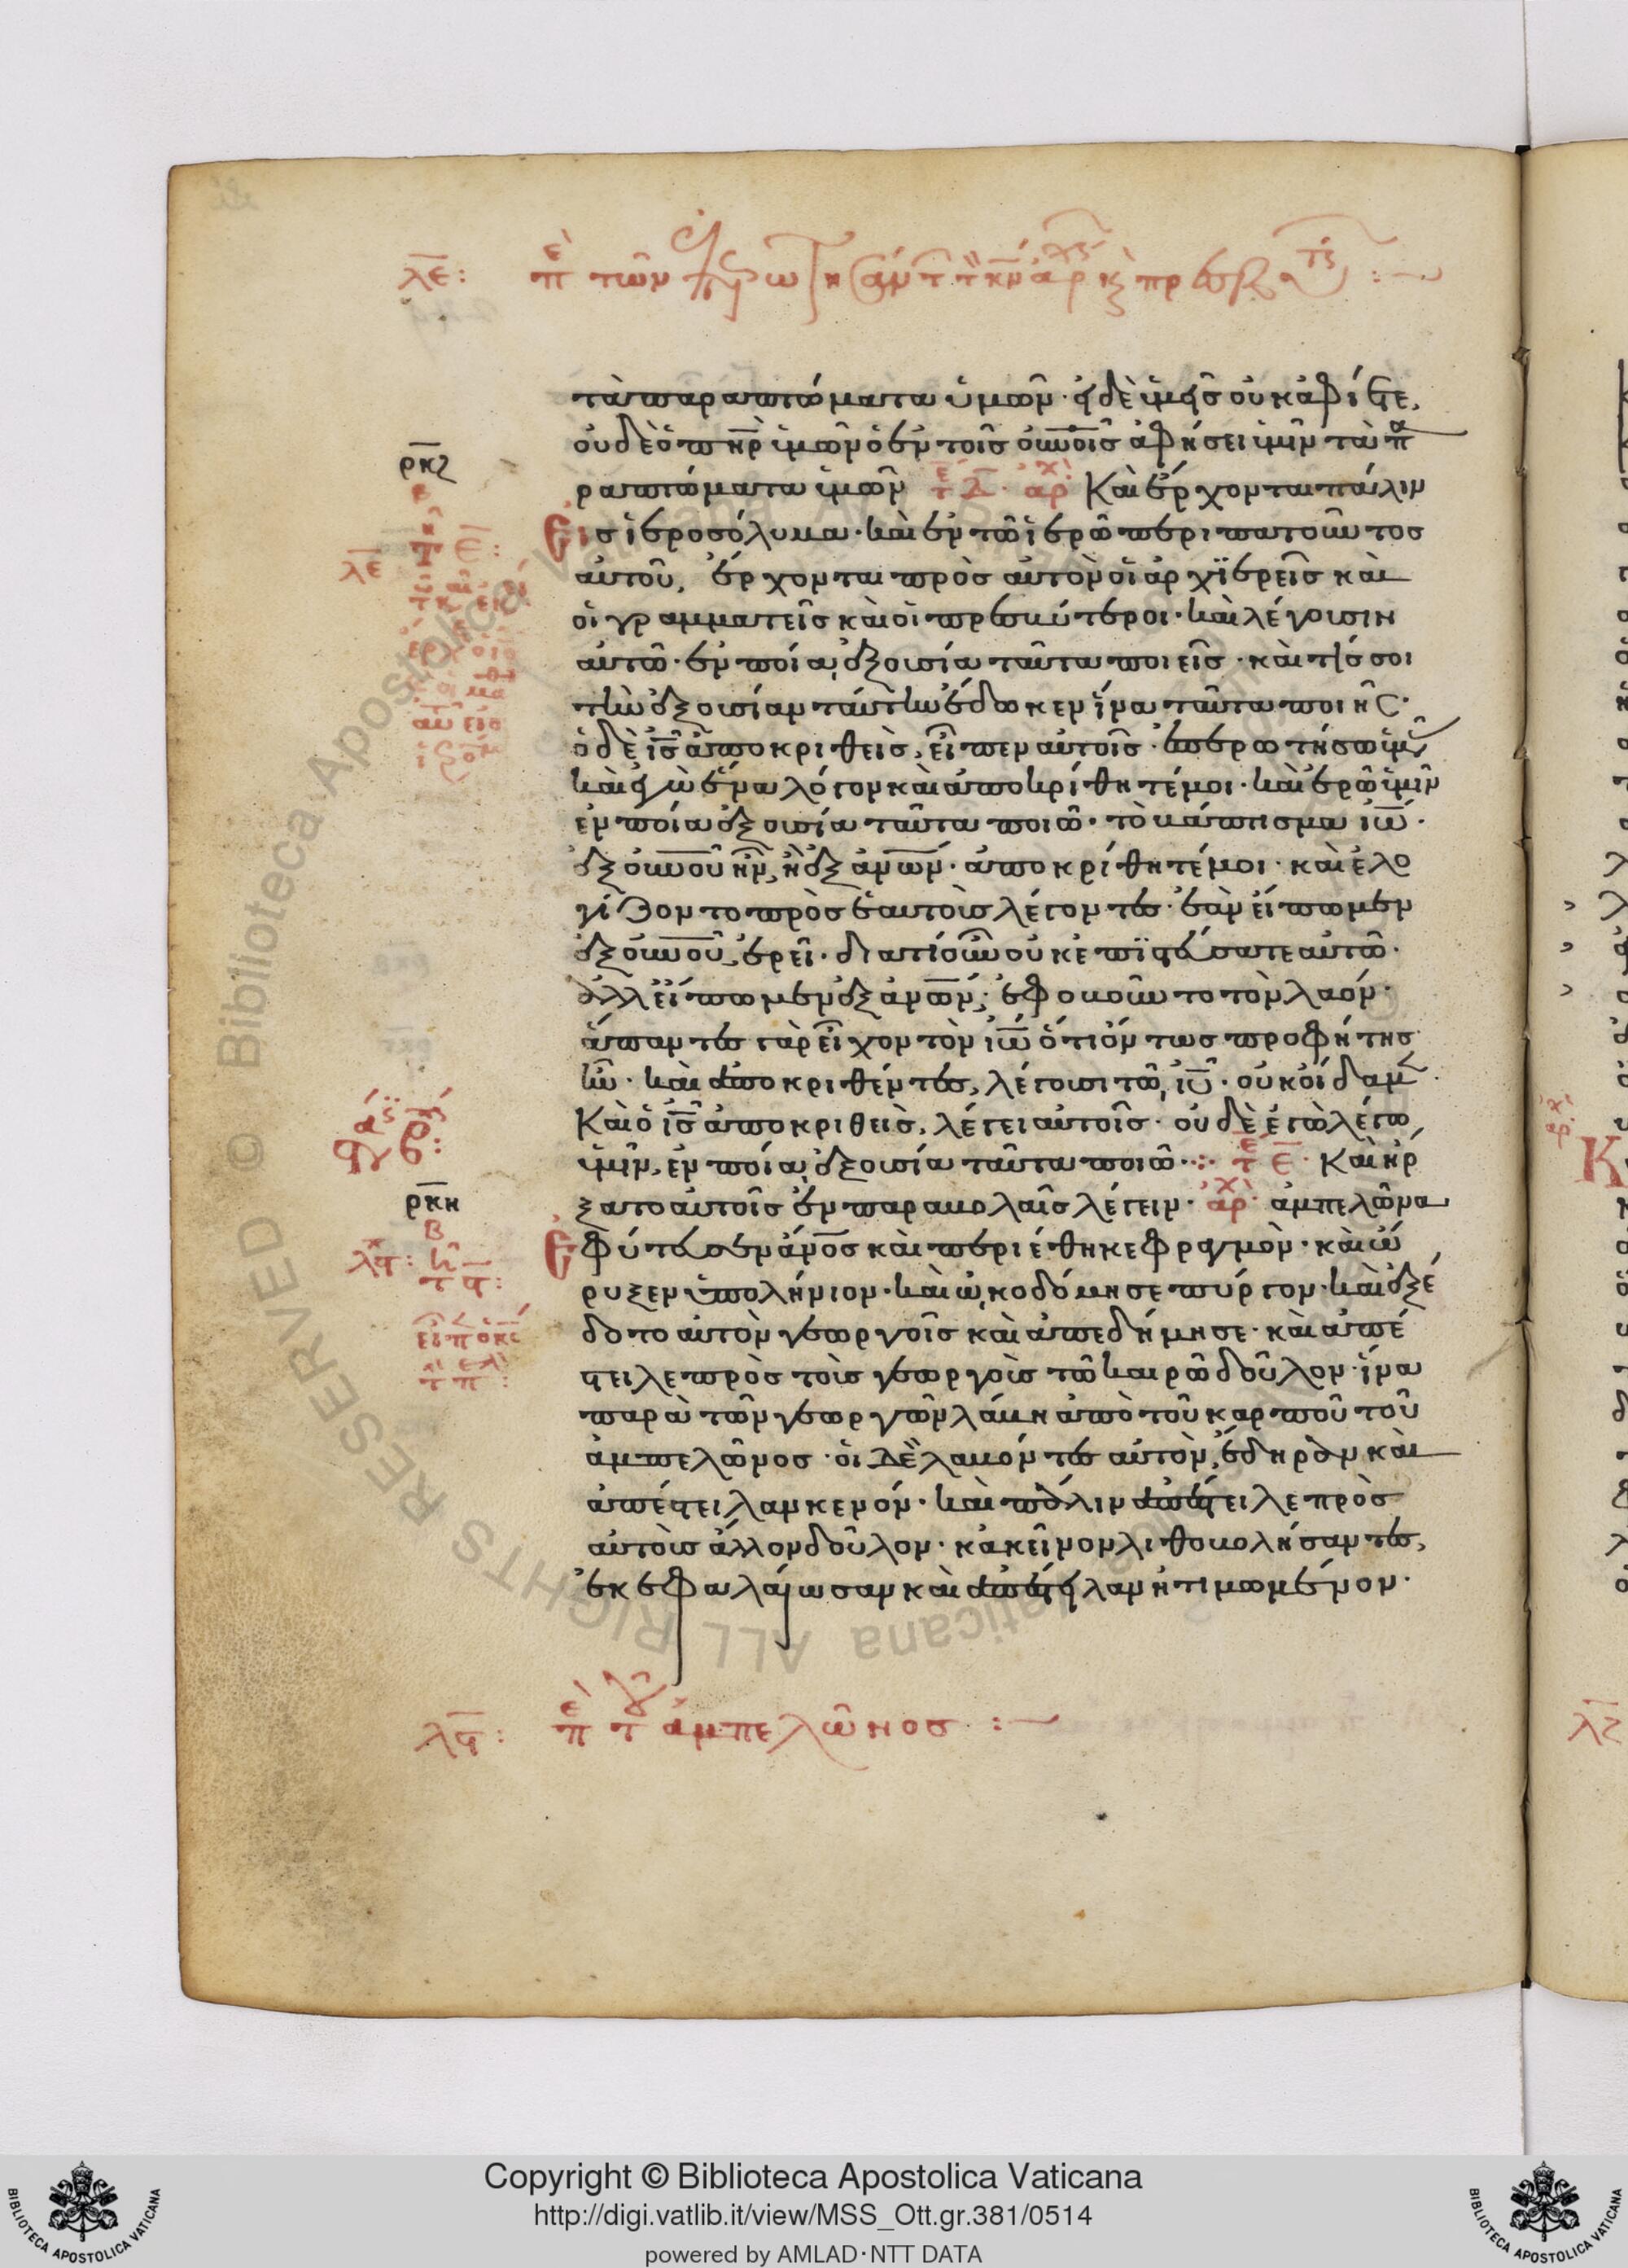 λε: τῶν
τὰ παραπτώματα ὑμῶν· εἰ δὲ ὑμεῖς οὐκ ἀφίετε,
οὐδὲ ὁ π̅η̅ρ̅ ὑμῶν ὁ ἐν τοῖς οὐνοῖς ἀφήσει ὑμῖν τὰ πα
ραπτώματα ὑμῶν τε Δ· ἀρχ Καὶ ἔρχονται πάλιν
ρκζ
εἰς ἱεροσόλυμα· καὶ ἐν τῶ ἱερῶ περιπατοῦντος
λε
αὐτοῦ, ἔρχονται πρὸς αὐτὸν οἱ ἀρχϊερεῖς καὶ
οἱ γραμματεῖς καὶ οἱ πρεσβύτεροι· καὶ λέγουσιν
αὐτῶ· ἐν ποία ἐξουσία ταῦτα ποιεῖς· καὶ τίς σοι
τὴν ἐξουσίαν ταύτην ἔδωκεν ἵνα ταῦτα ποιῆς·
ὁ δὲ ι̅ς̅ ἀποκριθεὶς, εἶπεν αὐτοῖς· ἐπερωτήσω ὑμᾶς
καὶ ἐγὼ ἕνα λόγον καὶ ἀποκρίθητέ μοι· καὶ ἐρῶ ὑμῖν
ἐν ποία ἐξουσία ταῦτα ποιῶ· τὸ βάπτισμα ι̅ω̅·
ἐξ οὐνοῦ ἦν, ἢ ἐξ ἀνων· ἀποκρίθητέ μοι· καὶ ἐλο
γίζοντο πρὸς ἑαυτοὺς λέγοντες· ἐὰν εἴπωμεν
ἐξ οὐνοῦ, ἐρεῖ· διατί οὖν οὐκ ἐπϊστεύσατε αὐτῶ·
ἀλλ εἴπωμεν ἐξ ἀνων, ἐφοβοῦντο τὸν λαόν·
ἅπαντες γὰρ εἶχον τὸν ι̅ω̅ ὅτι ὄντως προφήτης
ἦν· καὶ ἀποκριθέντες, λέγουσι τῶ ι̅υ̅· οὐκ οἴδαμεν·
Καὶ ὁ ι̅ς̅ ἀποκριθεὶς, λέγει αὐτοῖς· οὐδὲ ἐγὼ λέγω
ὑμῖν, ἐν ποία ἐξουσία ταῦτα ποιῶ· τε ε· Καὶ ἤρ
ρκη
ξατο αὐτοῖς ἐν παραβολαῖς λέγειν· ἀρχ ἀμπελῶνα
β
ἐφύτευσεν ἄνος καὶ περιέθηκε φραγμὸν· καὶ ὤ
ρυξεν ὑπολήνιον· καὶ ὠκοδόμησε πύργον· καὶ ἐξέ
δοτο αὐτὸν γεωργοῖς καὶ ἀπεδήμησε· καὶ ἀπέ
στειλε πρὸς τοὺς γεωργοὺς τῶ καιρῶ δοῦλον· ἵνα
παρὰ τῶν γεωργῶν λάβη ἀπὸ τοῦ καρποῦ τοῦ
ἀμπελῶνος· οἱ δὲ λαβόντες αὐτὸν, ἔδηραν καὶ
ἀπέστειλαν κενόν· καὶ πάλιν ἀπέστειλε πρὸς
αὐτοὺς ἄλλον δοῦλον· κἀκεῖνον λιθοβολήσαντες,
ἐκεφαλαίωσαν καὶ ἀπέστειλαν ἠτιμωμένον·
λϛ: πε τοῦ ἀμπελῶνος :
Copyright © Biblioteca Apostolica Vaticana
http://digi.vatlib.it/view/MSS_Ott.gr.381/0514
powered by AMLAD·NTT DATA
BIBLIOTECA APOSTOLICA VATICANA
BIBLIOTECA APOSTOLICA VATICANA